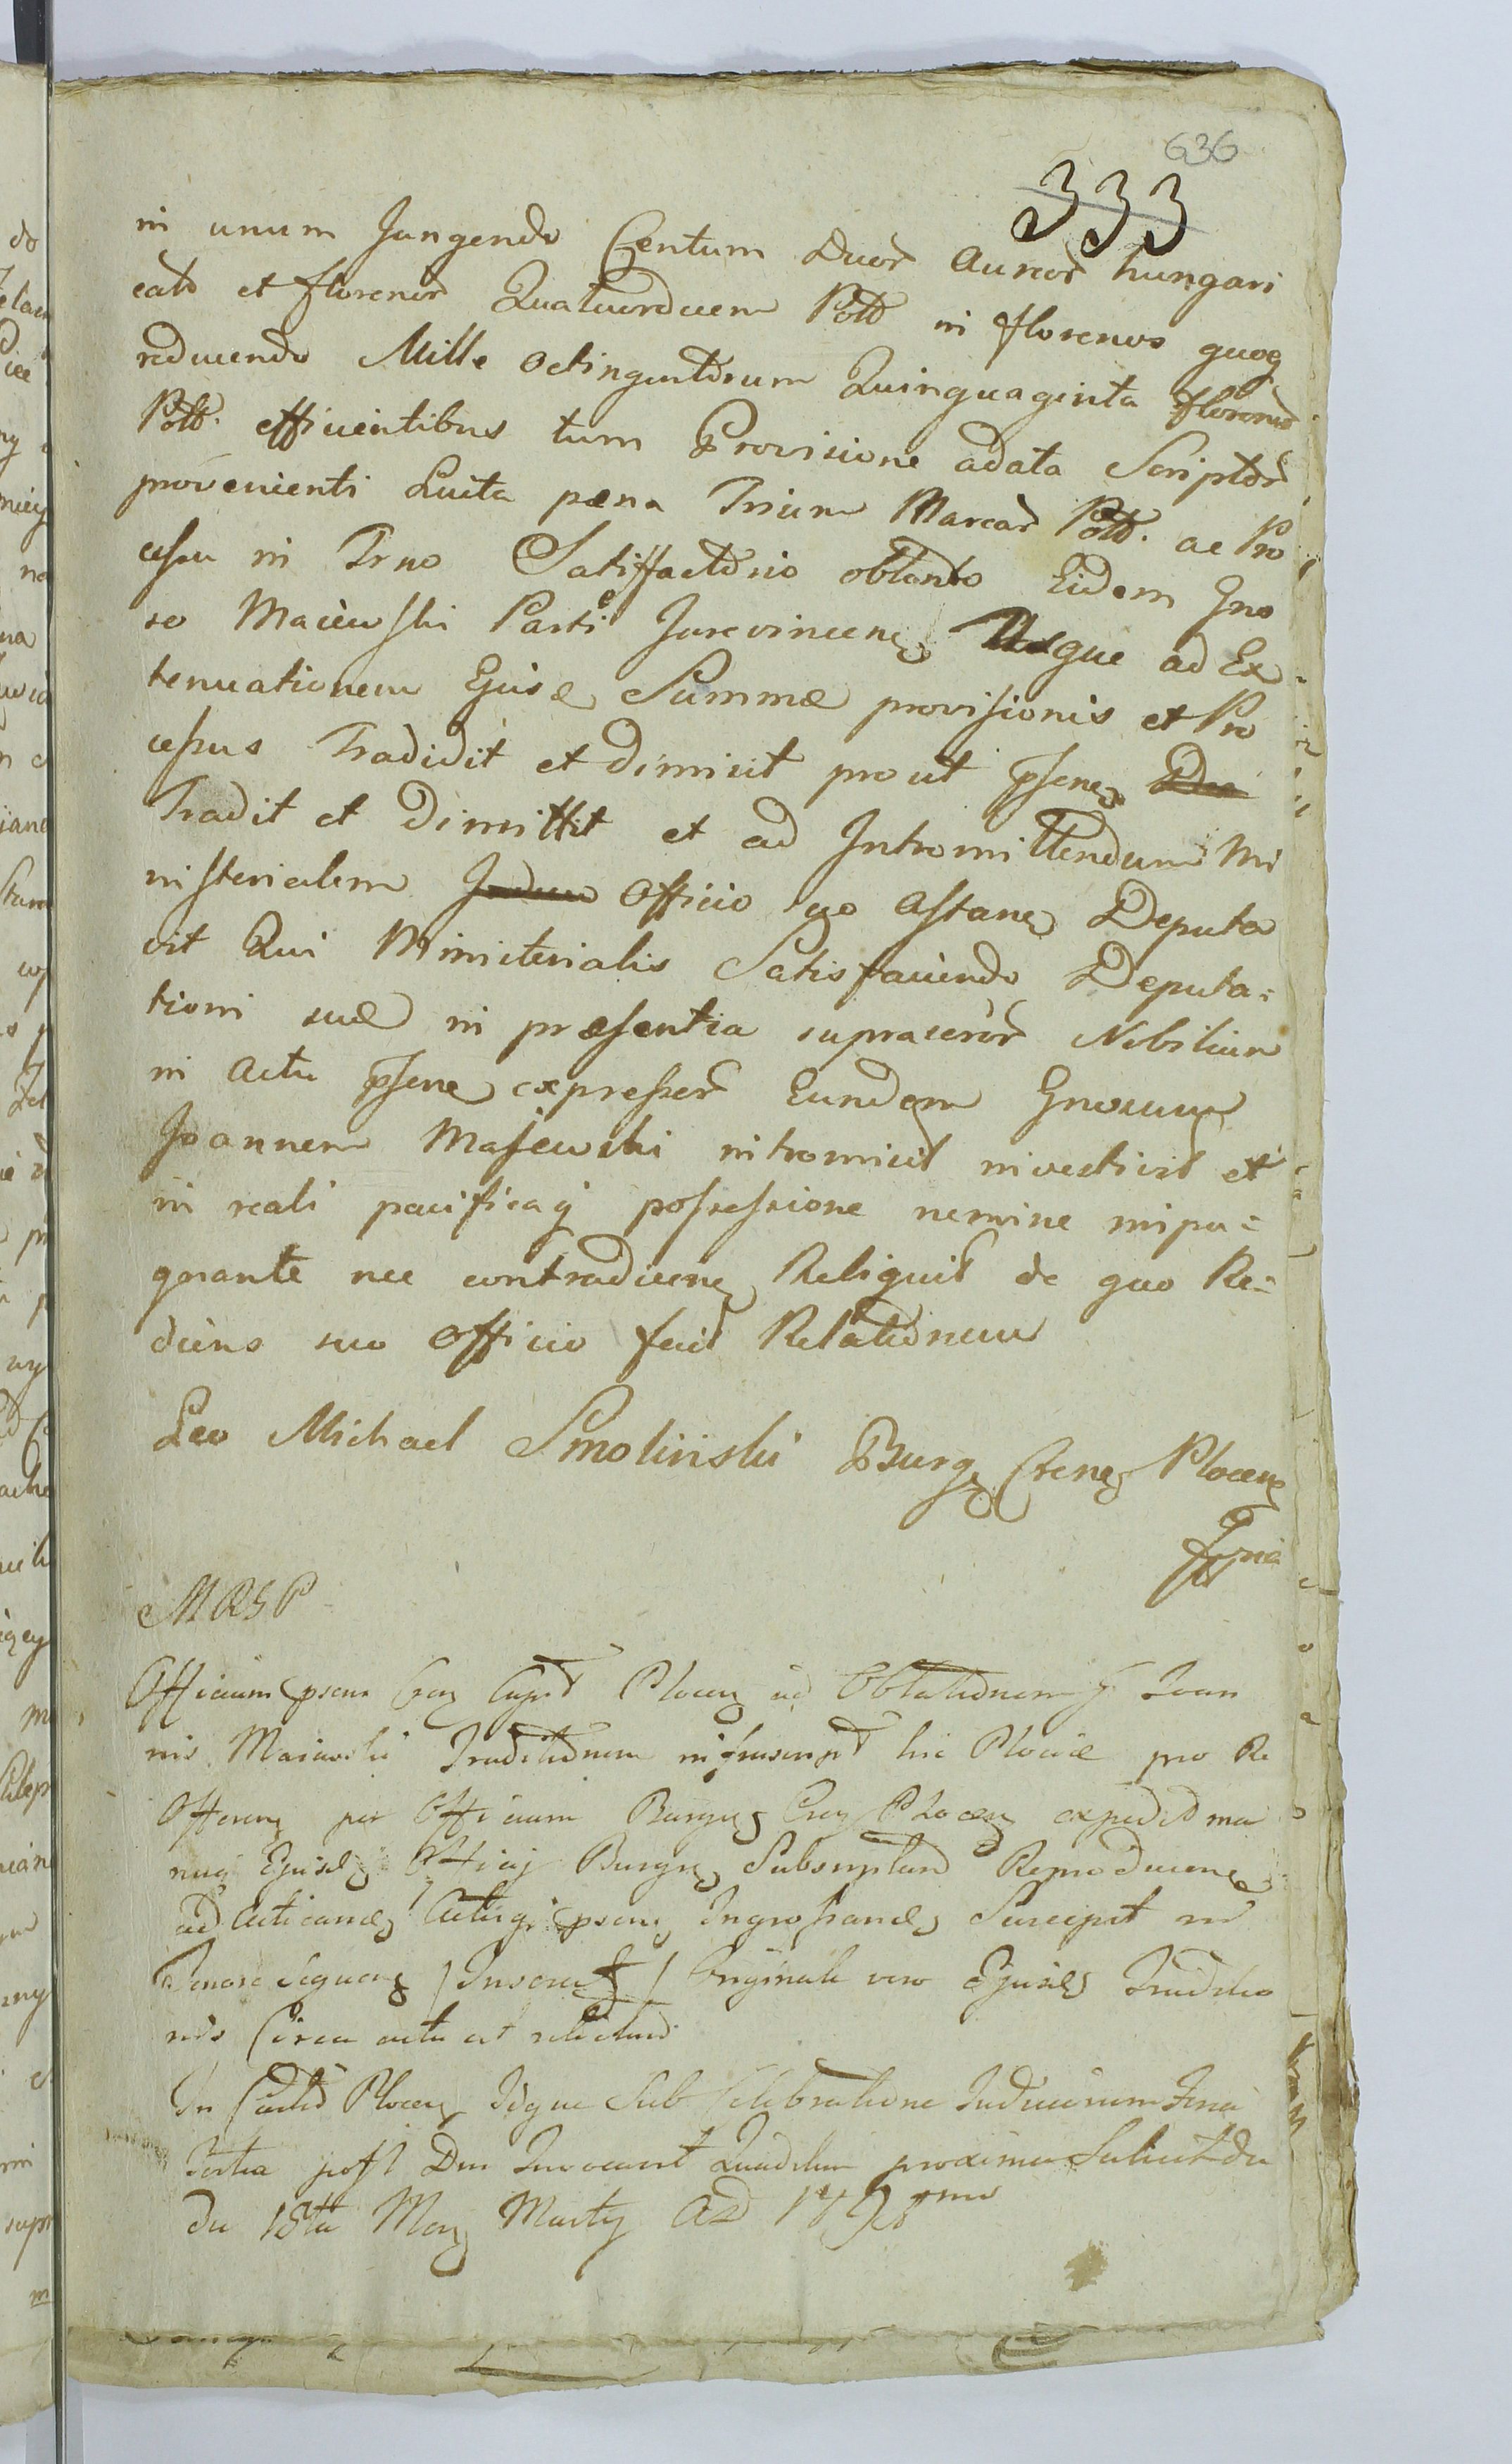 636
333
in unum Jungendo Centum Duor Aureor hungari
cal et florenor Quatuordecem Poll in florenos quoq
reducendo Mille Octinguntorum Quinquaginta floreno
Poll. efficientibus tum Provisione adata Scriptor
provenienti Luita pæna Trium Marcar Poll. ac Pro
cessu in Trno Satisfactorio obtento Eidem Gno
so Maiewski Parti Jurevincene Usque ad Ex
tenuationem Ejusd Summæ provisionis et Pro
cessus Tradidit et dimisit prout psene
Tradit et Dimittit et ad Intromittendum Mi
nisterialem Officio suo Astane Deputa
vit Qui Ministerialis Satisfaciendo Deputa=
tioni suæ in præsentia suprascror Nobilium
in Actu psene expresser Eundem Gnosum
Joannem Majewski intromisit investivit et
in reali pacificaq possessione nemine inpu=
gnante nec contradicene Reliquit de quo Re=
diens suo Officio fecit Relationem
Leo Michael Smolinski Burg Crene Plocen
MRSP
Officium psens Plocen ad Oblationem Joan
nis Maiewski Traditionem infrascript hic Plociæ pro Re
Offeren per Officium Burgen Plocen expedit ma
nuq Ejusd Officij Burgen Subscriptam Reproducene
ad Acticand Actisq psen Ingrossand Suscepit in
Tenore Sequen / Inserat / Originale vero Ejusd Traditio
nis Circa acta est relictum
In Castro Plocen Idque Sub Celebratione Judiciorum Feria
Tertia post Dm Invocavit proxima Scilicet die
die 18va Mens Martij AD